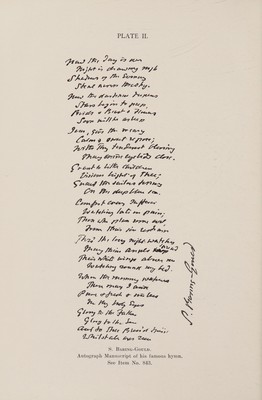 PLATE II.
Now the day is over
Night is drawing nigh
Shadows of the Evening
Steal across the sky.
Now the darkness deepens
Stars begin to peep,
Birds & Beasts & Flowers
Soon will be asleep
Jesu, give the weary
Calm & sweet repose;
With Thy tenderest blessing
May eyelids close.
Grant to little children
Visions bright of Thee;
Guard the sailors tossing
On the deep blue sea.
Comfort every sufferer
Watching late in pain;
Those who plan some evil
From their sin restrain
Thro' the long night watches
May Thine Angels
Their white wings above me
Watching round my bed.
When the morning wakens
Then may I arise
Pure & fresh & sinless
In Thy holy Eyes
Glory to the Father
Glory to the Son
And to Thee Blessed Spirit
Whilst all
S. Baring-Gould
S. BARING-GOULD.
Autograph Manuscript of his famous hymn.
See Item No. 943.